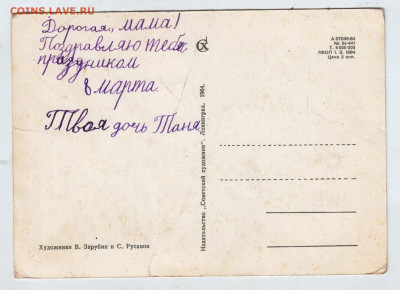 СОИНS.LAVE.RU
Дорогая, мама!
Поздравляю тебя с
праздником
8 марта.
Твоя дочь Таня
СХ
А-07646-64
Т. 6 000 000
ЛФОП 1. 3. 1964
Цена 3 коп.
Издательство „Советский художник“. Ленинград. 1964.
Художники В. Зарубин и С. Русаков